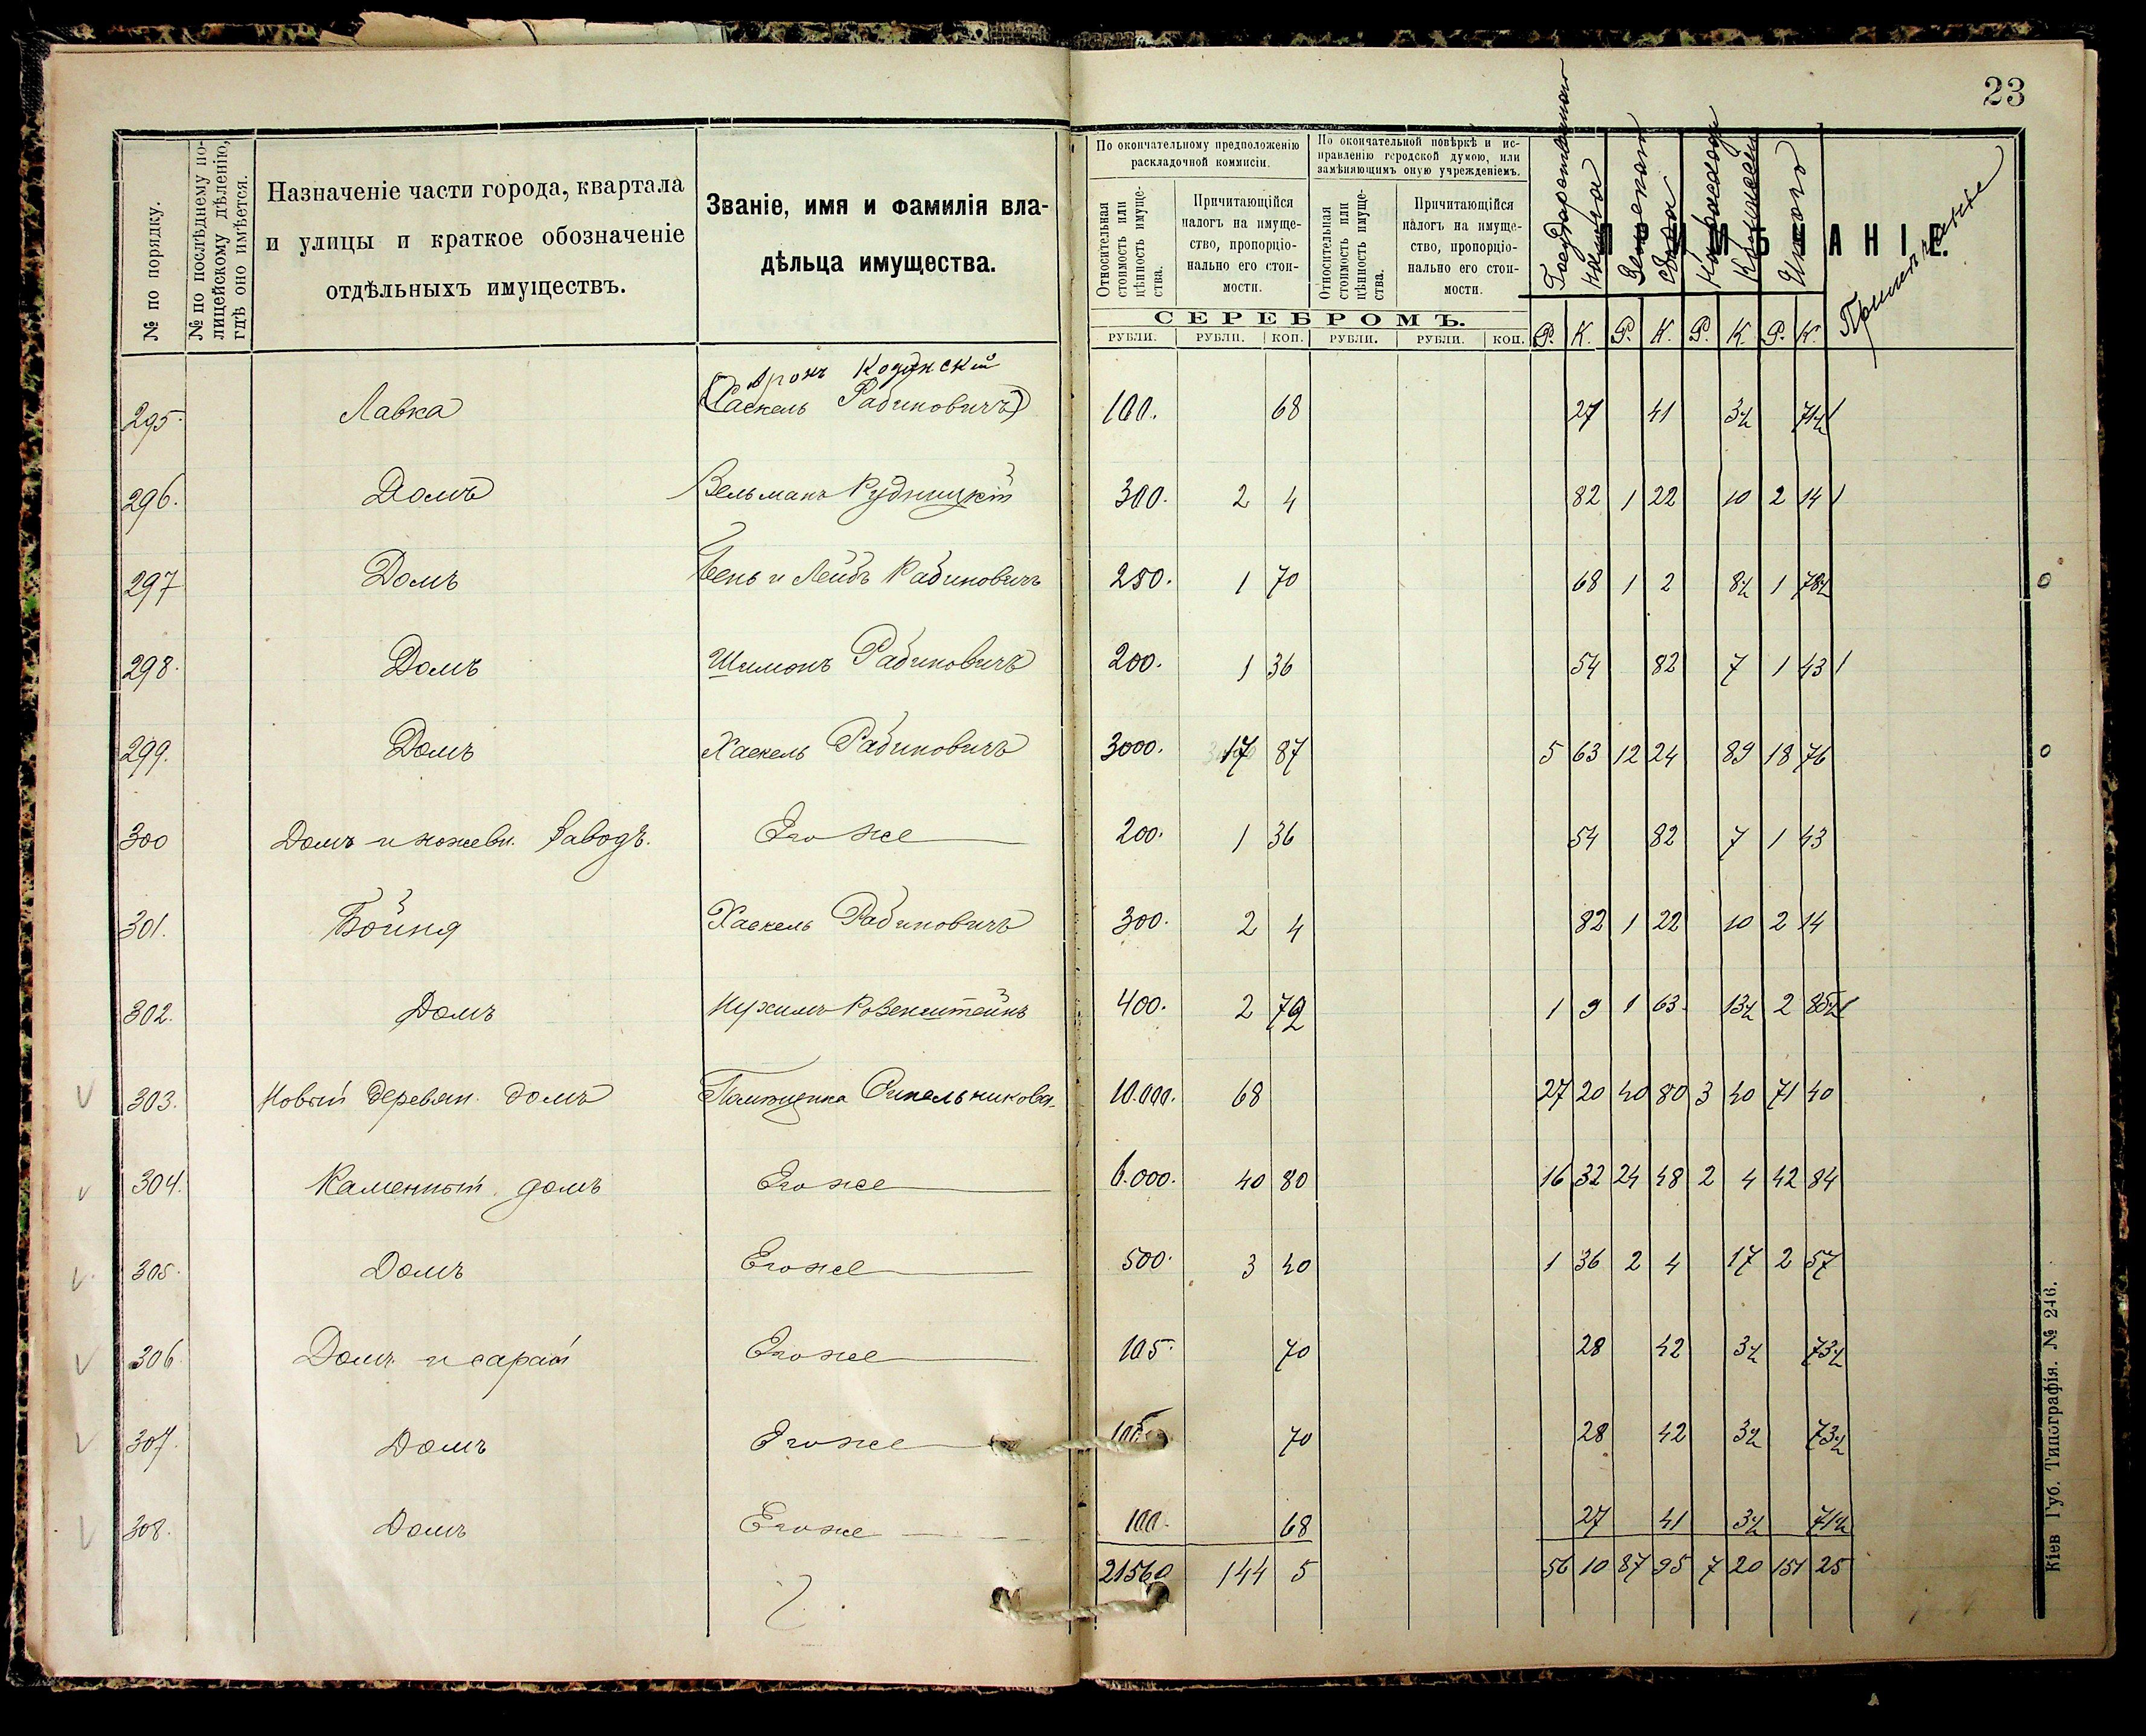 23
№ по порядку.
№ по послѣднему по-
лицейскому дѣленію,
гдѣ оно имѣется.
Назначеніе части города, квартала
и улицы и краткое обозначеніе
отдѣльныхъ имуществъ.
Званіе, имя и фамилія вла-
дѣльца имущества.
По окончательному предположенію
раскладочной коммисіи.
По окончательной повѣркѣ и ис-
правленію городской думою, или
замѣняющимъ оную учрежденіемъ.
Относительная
стоимость или
цѣнность имуще-
ства.
Причитающійся
налогъ на имуще-
ство, пропорціо-
нально его стои-
мости.
Относительная
стоимость или
цѣнность имуще-
ства.
Причитающійся
налогъ на имуще-
ство, пропорціо-
нально его стои-
мости.
ПРИМѢЧАНІЕ.
Государственнаго
налога
Земскаго
сбора
На расходы
Коммисіи
Итого
Примѣчаніе
СЕРЕБРОМЪ.
РУБЛИ. РУБЛИ. КОП. РУБЛИ. РУБЛИ. КОП. Р. К. Р. К. Р. К. Р. К.
Аронъ Козинскій
295. Лавка (Хаскель Рабиновичъ) 100. 68 27 41 3½ 71½
296. Домъ Вельманъ Рудницкій 300. 2 4 82 1 22 10 2 14
297 Домъ и Лейбъ Рабиновичъ 250. 1 70 68 1 2 8½ 1 78½ 0
298. Домъ Шимонъ Рабиновичъ 200. 1 36 54 82 7 1 43
299. Домъ Хаскель Рабиновичъ 3000. 17 87 5 63 12 24 89 18 76 0
300 Домъ и кожевн. заводъ. Его же 200. 1 36 54 82 7 1 43
301. Бойня Хаскель Рабиновичъ 300. 2 4 82 1 22 10 2 14
302. Домъ Нухимъ Розенштейнъ 400. 2 72 1 9 1 63 13½ 2 85½
303. Новый деревян. домъ Помѣщика Синельникова 10.000. 68 27 20 40 80 3 40 71 40
304. Каменный домъ Его же 6.000. 40 80 16 32 24 48 2 4 42 84
305. Домъ Его же 500. 3 40 1 36 2 4 17 2 57
306. Домъ и сарай Его же 105. 70 28 42 3½ 73½
307. Домъ Его же 105 70 28 42 3½ 73½
308. Домъ Его же 100. 68 27 41 3½ 71½
21560 144 5 56 10 87 95 7 20 151 25
Кіев Губ. Типографія. № 246.